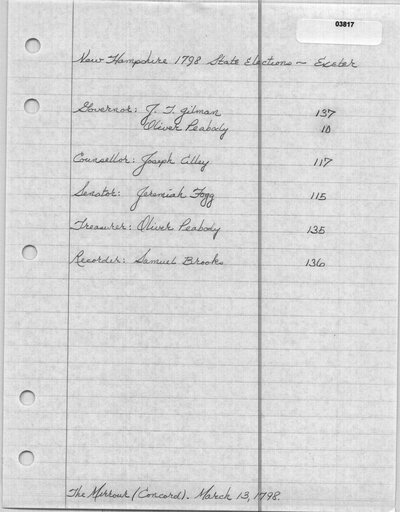 03817
New Hampshire 1798 State Elections - Exeter
Governor: J. T. Gilman 137
Oliver Peabody 10
Counsellor: Joseph Cilley 117
Senator: Jeremiah Fogg 115
Treasurer: Oliver Peabody 135
Recorder: Samuel Brooks 136
The Mirrour (Concord). March 13, 1798.